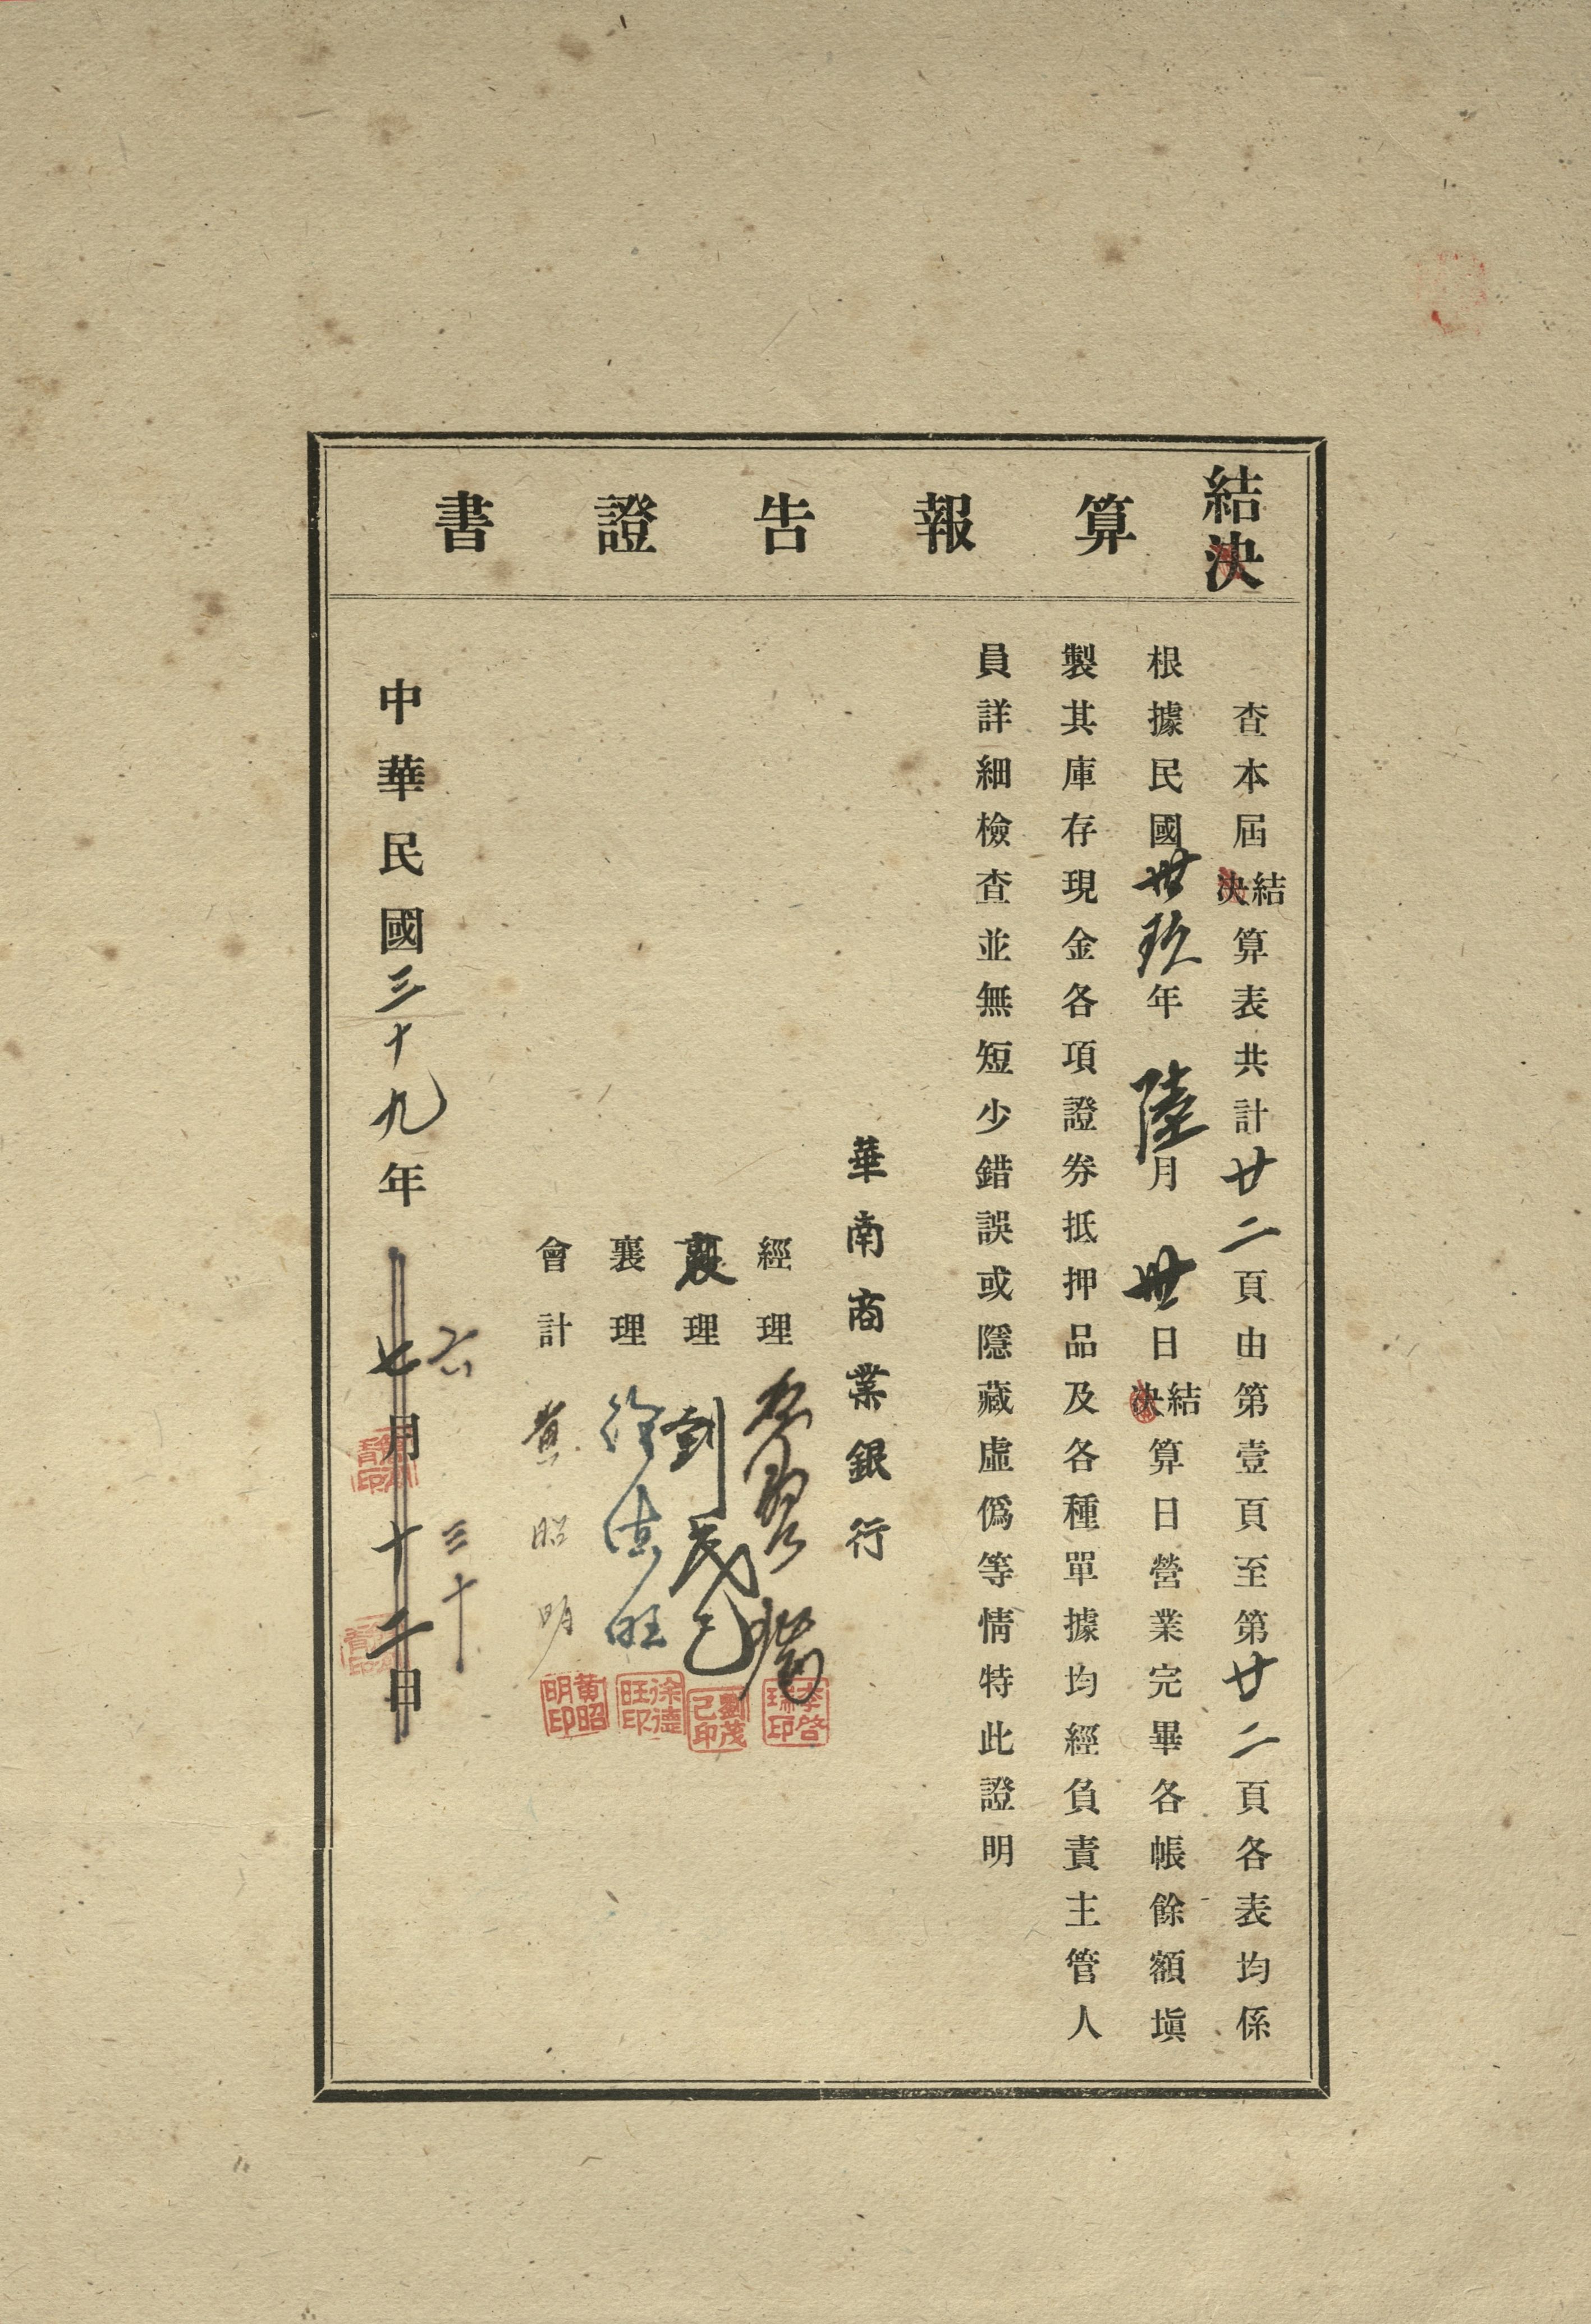 結決算報告證書
查本屆結決算表共計廿二頁由第壹頁至第廿二頁各表均係
根據民國卅玖年陸月卅日結決算日營業完畢各帳餘額塡
製其庫存現金各項證券抵押品及各種單據均經負責主管人
員詳細檢查並無短少錯誤或隱藏虛僞等情特此證明
華南商業銀行
經理 李啓瑞
李啓瑞印
襄理 劉茂己
劉茂己印
襄理 徐德旺
徐德旺印
會計 黄昭明
黄昭明印
六 三十
中華民國三十九年七月十二日